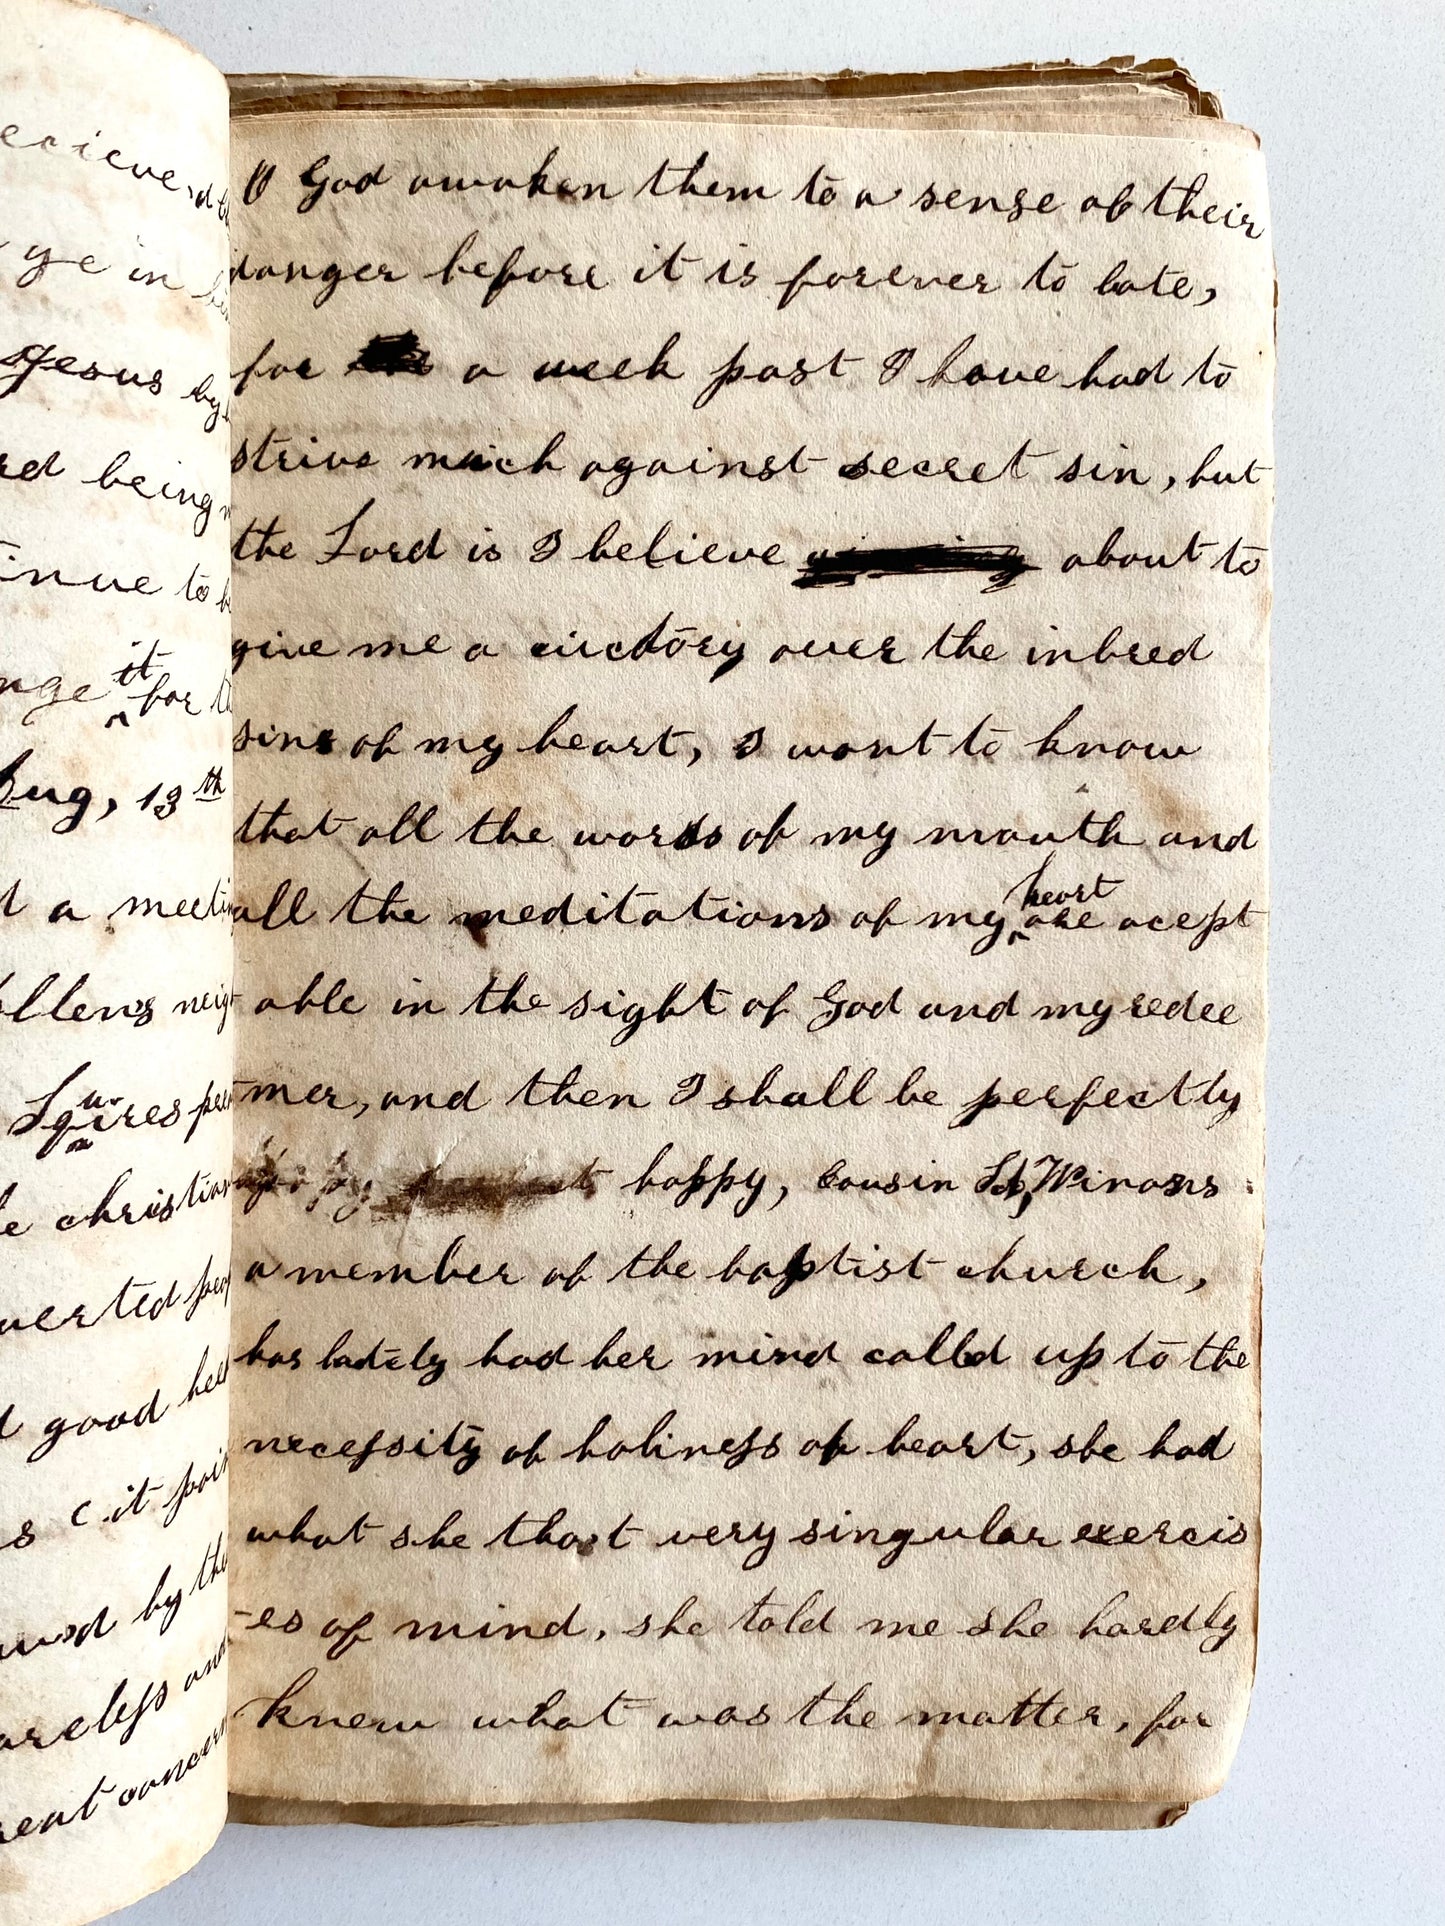 ye in
Jesus by
being
to
it
for
Aug, 13th
a meeting
christian
good
it
by the
and
O God awaken them to a sense of their
danger before it is forever to late,
for a week past I have had to
strive much against secret sin, but
the Lord is I believe about to
give me a victory over the inbred
sins of my heart, I want to know
that all the words of my mouth and
all the meditations of my heart are acept
able in the sight of God and my redee
mer, and then I shall be perfectly
happy, Cousin Winans
a member of the baptist church,
has lately had her mind called up to the
necessity of holiness of heart, she had
what she thot very singular exercis
-es of mind, she told me she hardly
knew what was the matter, for